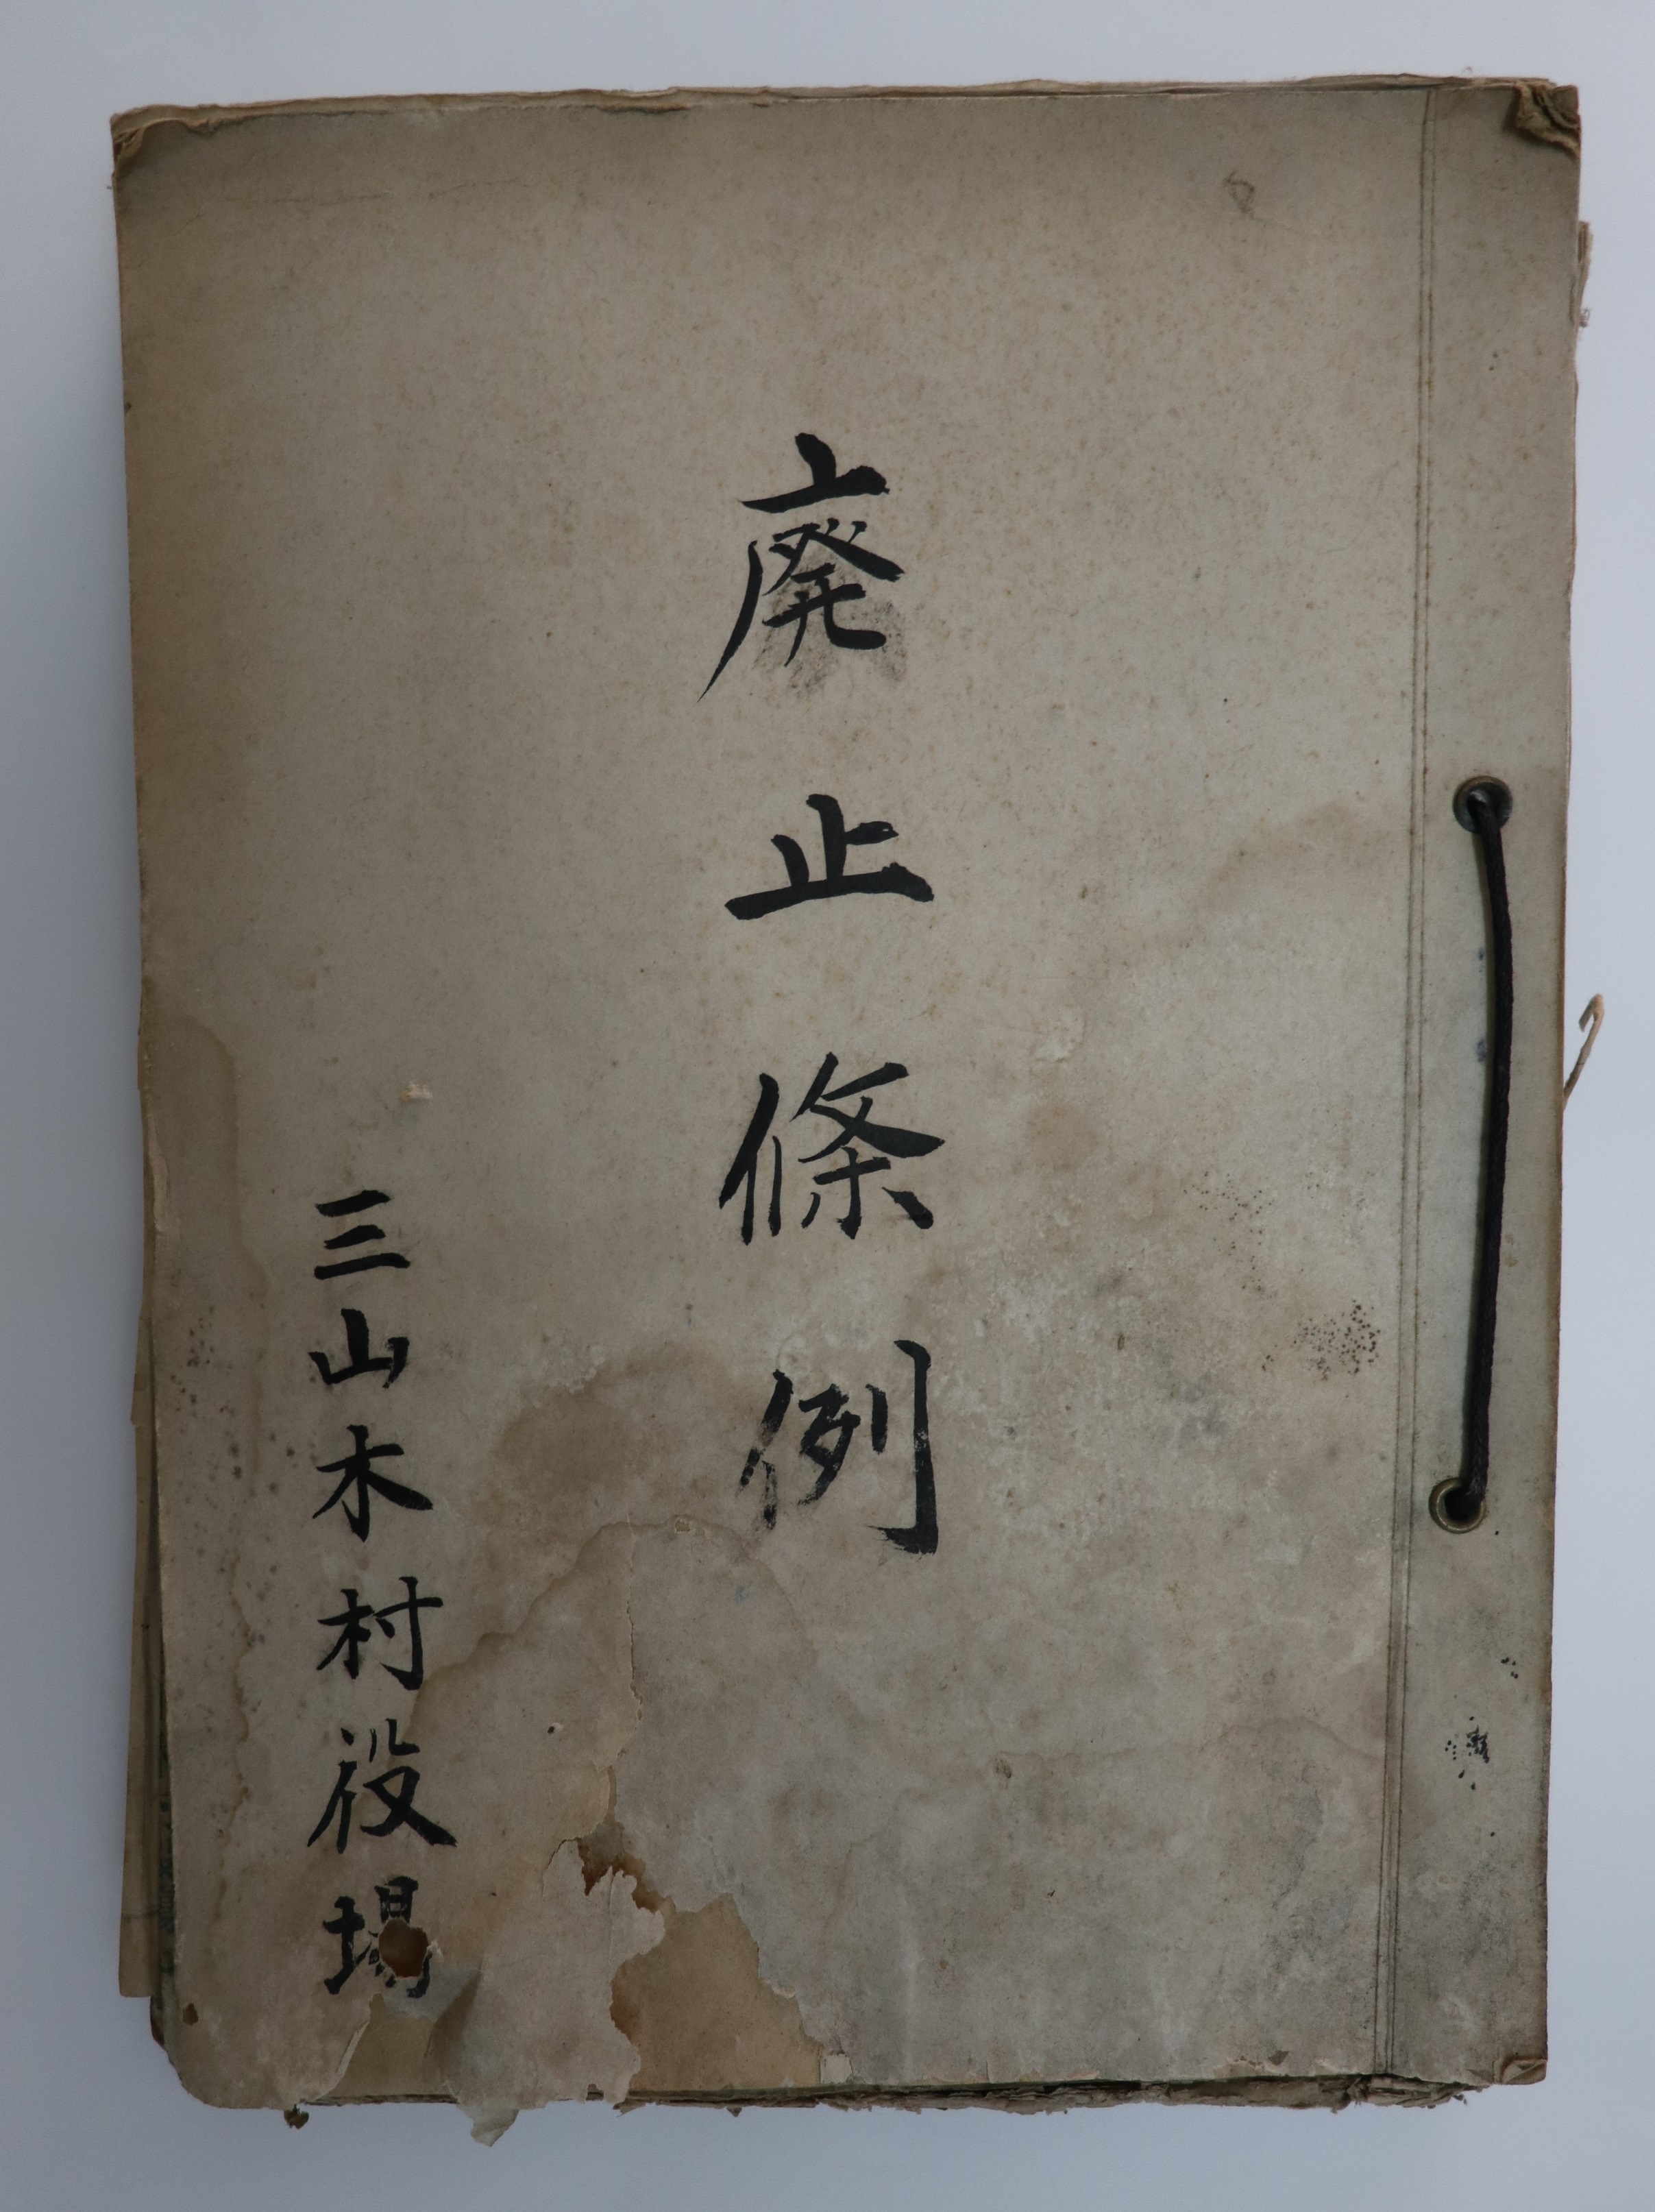 廃止條例
三山木村役場